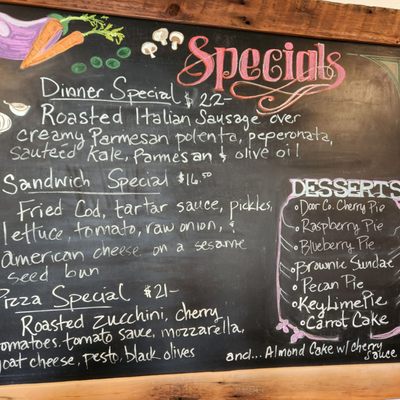 Specials
Dinner Special $22-
Roasted Italian Sausage over
creamy Parmesan polenta, peperonata,
sauteed kale, Parmesan & olive oil
Sandwich Special $16.50
Fried Cod, tartar sauce, pickles,
lettuce, tomato, raw onion, &
american cheese on a sesame
seed bun
Pizza Special $21-
Roasted zucchini, cherry
tomatoes, tomato sauce, mozzarella,
goat cheese, pesto, black olives
DESSERTS
Door Co. Cherry Pie
Raspberry Pie
Blueberry Pie
Brownie Sundae
Pecan Pie
Key Lime Pie
Carrot Cake
and... Almond Cake w/ Cherry
sauce